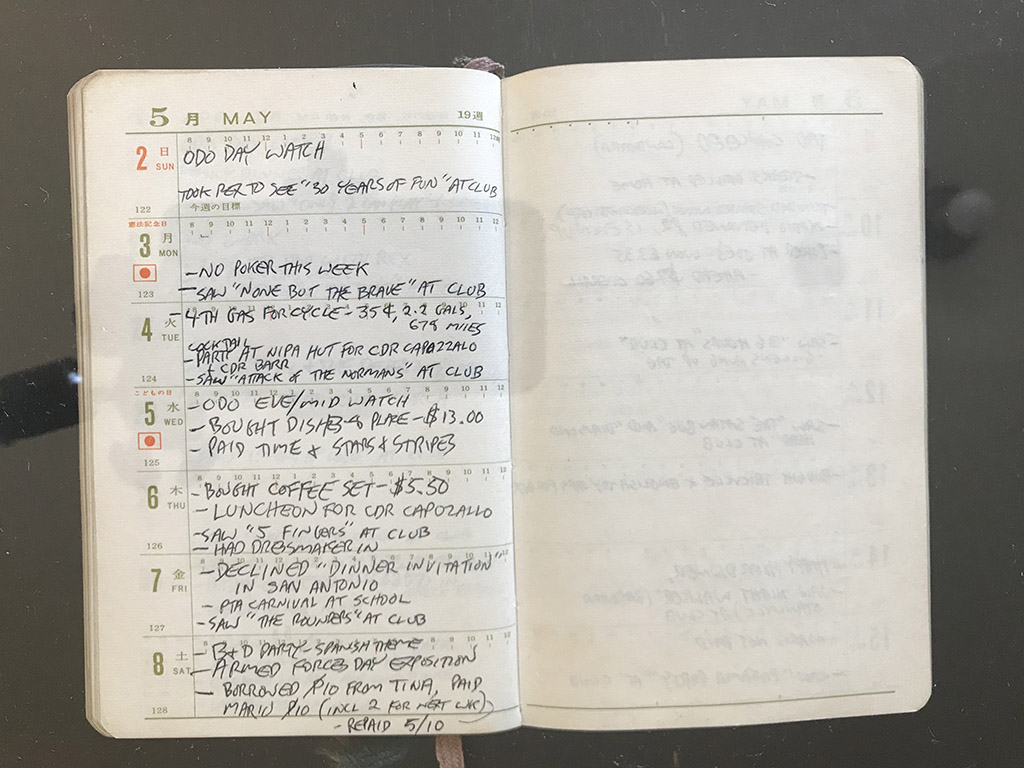 5 月 MAY 19週
8 9 10 11 12 1 2 3 4 5 6 7 8 9 10 11 12
2 日 SUN
ODO DAY WATCH
TOOK PER TO SEE "30 YEARS OF FUN" AT CLUB
122 今週の目標
憲法記念日
8 9 10 11 12 1 2 3 4 5 6 7 8 9 10 11 12
3 月 MON
- NO POKER THIS WEEK
123
- SAW "NONE BUT THE BRAVE" AT CLUB
8 9 10 11 12 1 2 3 4 5 6 7 8 9 10 11 12
4 火 TUE
- 4TH GAS FOR CYCLE - 35¢, 2.2 GALS,
679 MILES
COCKTAIL
- PARTY AT NIPA HUT FOR CDR CAPOZZALO
+ CDR BARR
124
- SAW "ATTACK OF THE NORMANS" AT CLUB
こどもの日
8 9 10 11 12 1 2 3 4 5 6 7 8 9 10 11 12
5 水 WED
- ODO EVE/MID WATCH
- BOUGHT DISHES + PLACE - $13.00
- PAID TIME + STARS & STRIPES
125
8 9 10 11 12 1 2 3 4 5 6 7 8 9 10 11 12
6 木 THU
- BOUGHT COFFEE SET - $5.50
- LUNCHEON FOR CDR CAPOZALLO
- SAW "5 FINGERS" AT CLUB
126
- HAD DRESSMAKER IN
8 9 10 11 12 1 2 3 4 5 6 7 8 9 10 11 12
7 金 FRI
- DECLINED "DINNER INVITATION"
IN SAN ANTONIO
- PTA CARNIVAL AT SCHOOL
127
- SAW "THE ROUNDERS" AT CLUB
8 9 10 11 12 1 2 3 4 5 6 7 8 9 10 11 12
8 土 SAT
- B+D PARTY - SPANISH THEME
- ARMED FORCES DAY EXPOSITION
- BORROWED P10 FROM TINA, PAID
128
MARIO P10 (INCL 2 FOR NEXT WK)
- REPAID 5/10